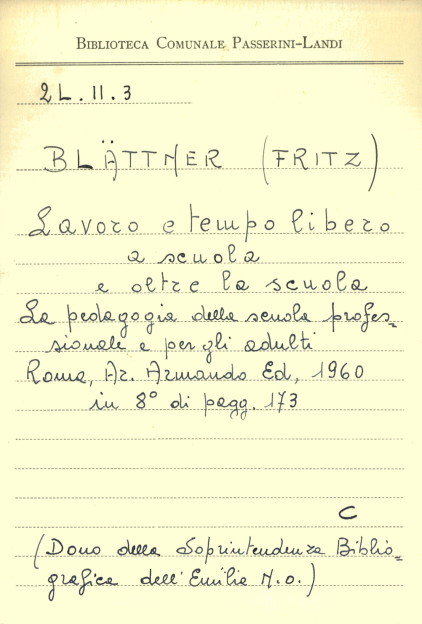 BIBLIOTECA COMUNALE PASSERINI-LANDI
2L.II.3
BLÄTTNER (FRITZ)
Lavoro e tempo libero
a scuola
e oltre la scuola
La pedagogia della scuola profes=
sionale e per gli adulti
Roma, Ar. Armando Ed, 1960
in 8° di pagg. 173
C
(Dono della Soprintendenza Biblio=
grafica dell'Emilia N.O.)